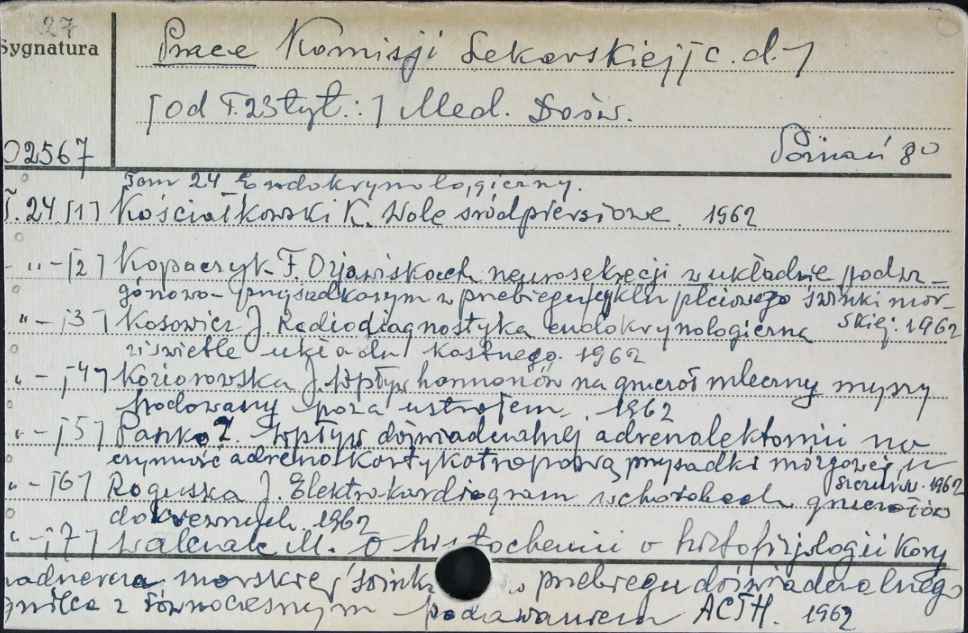 27
Sygnatura
Prace Komisji Lekarskiej [c.d.]
[od T. 23 tyt.:] Med. Dośw.
02567
Poznań 80
Tom 24 Endokrynologiczny.
T. 24 [1] Kościałkowski K. Wole śródpiersiowe. 1962
- " - [2] Kopaczyk F. O zjawiskach neurosekrecji w układzie podwz-
górzowo-przysadkowym w przebiegu cyklu płciowego świnki mor-
skiej. 1962
" - [3] Kosowicz J. Radiodiagnostyka endokrynologiczna
w świetle układu kostnego. 1962
" - [4] Koziorowska J. Wpływ hormonów na gruczoł mleczny myszy
hodowany poza ustrojem. 1962
" - [5] Pańko Z. Wpływ doświadczalnej adrenalektomii na
czynność adrenokortykotropową przysadki mózgowej u
szczurów. 1962
" - [6] Roguska J. Elektrokardiogram w chorobach gruczołów
dokrewnych. 1962
" - [7] Walczak M. O histochemii i histofizjologii kory
nadnercza morskiej świnki w przebiegu doświadczalnego
gnilca z równoczesnym podawaniem ACTH. 1962